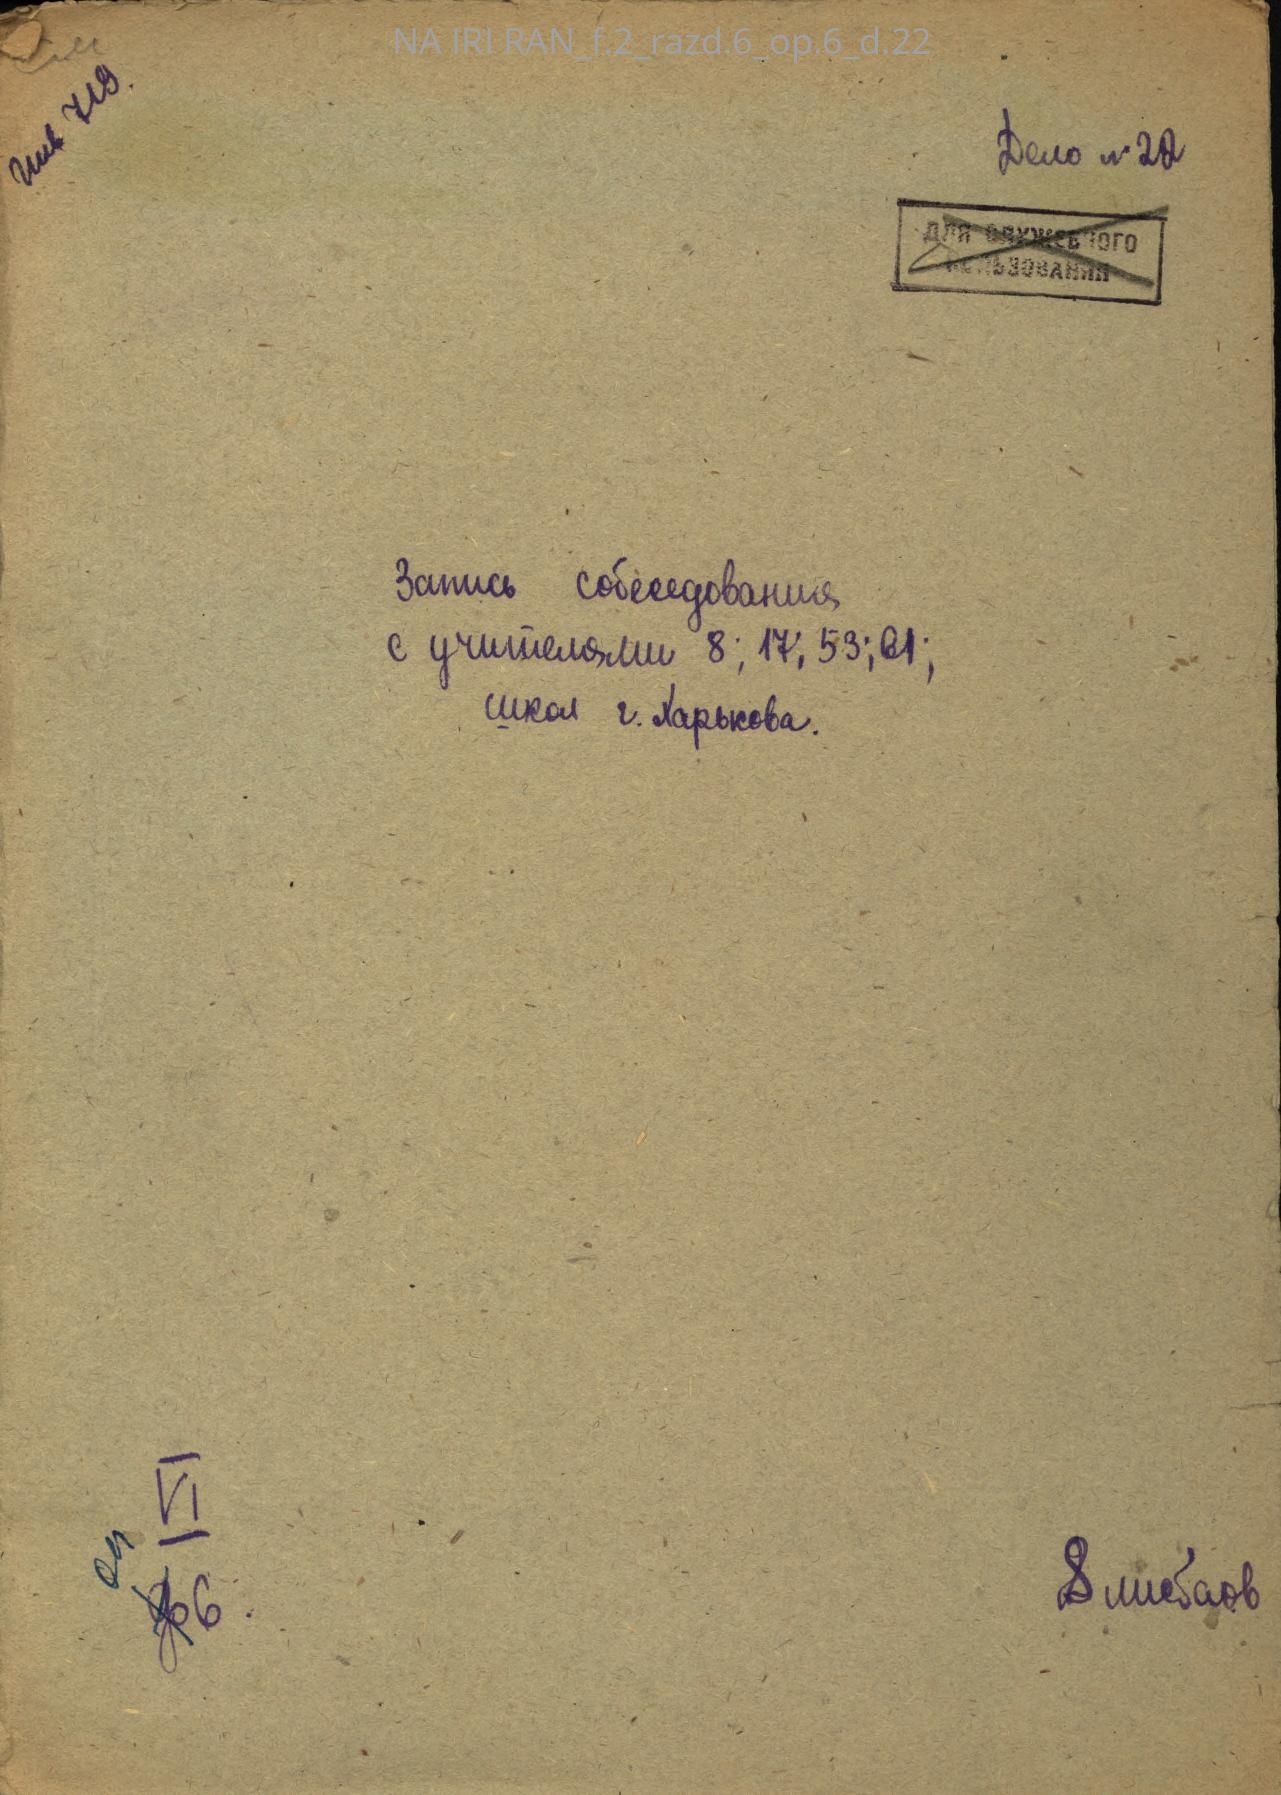 NA IRI RAN_f.2_razd.6_op.6_d.22
инв 719.
Дело № 22
ДЛЯ СЛУЖЕБНОГО
ПОЛЬЗОВАНИЯ
Запись собеседования
с учителями 8; 17; 53; 61;
школ г. Харькова.
VI
оп
6.
8 листов